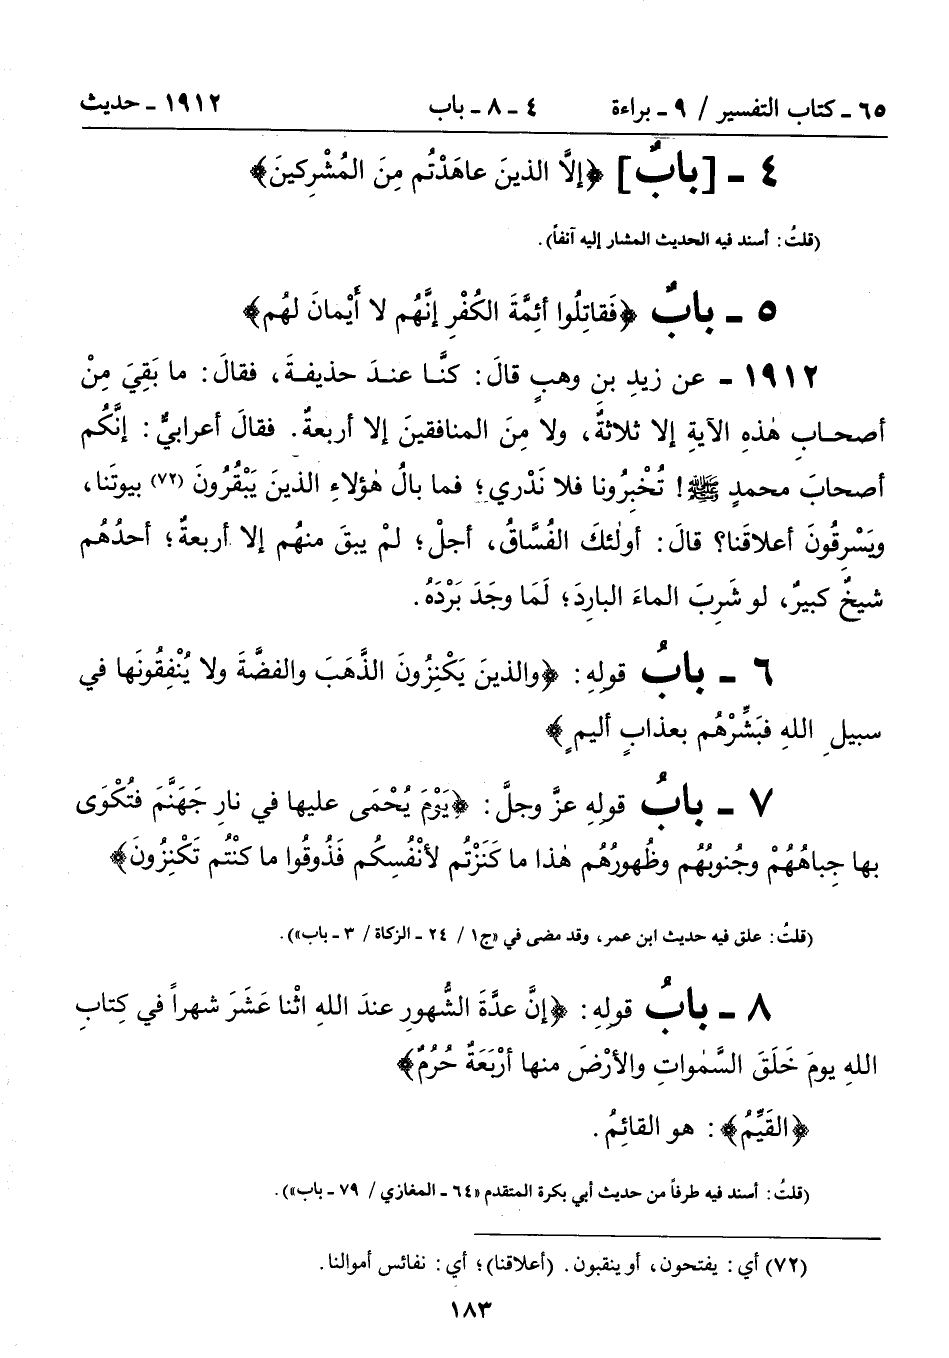 ٦٥ ـ كتاب التفسير / ٩ ـ براءة ٤ ـ ٨ ـ باب ١٩١٢ ـ حديث
٤ ـ [بابٌ] ﴿إلَّا الذينَ عاهَدْتُم مِنَ المُشْرِكينَ﴾
(قلتُ: أسند فيه الحديث المشار إليه آنفاً).
٥ ـ بابٌ ﴿فَقاتِلُوا أئِمَّةَ الكُفْرِ إنَّهُم لا أَيْمانَ لهُم﴾
١٩١٢ ـ عن زيدِ بنِ وهبٍ قالَ: كنَّا عندَ حذيفةَ، فقالَ: ما بَقِيَ مِنْ
أصحابِ هٰذهِ الآيةِ إلا ثلاثةٌ، ولا مِنَ المنافقينَ إلا أربعةٌ. فقالَ أعرابيٌّ: إنَّكُم
أصحابَ محمدٍ ﷺ! تُخْبِرُونا فلا نَدْري؛ فما بالُ هٰؤلاءِ الذينَ يَبْقُرُونَ (٧٢) بيوتَنا،
ويَسْرِقُونَ أعلاقَنا؟ قالَ: أولٰئكَ الفُسَّاقُ، أجلْ؛ لمْ يبقَ منهُم إلا أربعةٌ؛ أحدُهُم
شيخٌ كبيرٌ، لو شَرِبَ الماءَ الباردَ؛ لَمَا وجَدَ بَرْدَهُ.
٦ ـ بابُ قولِهِ: ﴿والذينَ يَكْنِزُونَ الذَّهَبَ والفضَّةَ ولا يُنْفِقُونَها في
سبيلِ اللهِ فبَشِّرْهُم بعذابٍ أليمٍ﴾
٧ ـ بابُ قولِهِ عزَّ وجلَّ: ﴿يَوْمَ يُحْمَى عليها في نارِ جَهَنَّمَ فتُكْوَى
بها جِباهُهُمْ وجُنوبُهُم وظُهورُهُم هٰذا ما كَنَزْتُم لأنْفُسِكُم فَذُوقُوا ما كنْتُم تَكْنِزُونَ﴾
(قلتُ: علق فيه حديث ابن عمر، وقد مضى في «ج١ / ٢٤ ـ الزكاة / ٣ ـ باب»).
٨ ـ بابُ قولِهِ: ﴿إنَّ عدَّةَ الشُّهورِ عندَ اللهِ اثْنا عَشَرَ شهراً في كِتابِ
اللهِ يومَ خَلَقَ السَّمٰواتِ والأرْضَ منها أرْبَعَةٌ حُرُمٌ﴾
﴿القَيِّمُ﴾: هو القائِمُ.
(قلتُ: أسند فيه طرفاً من حديث أبي بكرة المتقدم «٦٤ ـ المغازي / ٧٩ ـ باب»).
(٧٢) أي: يفتحون، أو ينقبون. (أعلاقنا)؛ أي: نفائس أموالنا.
١٨٣